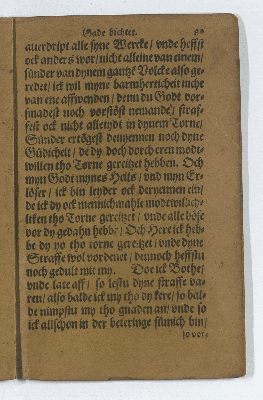 Gade bichtet.
auerdript alle syne Wercke / vnde hefft
ock anders wor / nicht alleine van einem /
sünder van dynem gantz Volcke also ge-
redet / ick wil myne barmherticheit nicht
van ene affwenden / denn du Godt vor-
smadest noch vorstöst nemande / straf-
fest ock nicht alletydt in dynem Torne /
Sünder ertögest dennennen noch dyne
Güdicheit / de dy doch dorch eren modt-
willen tho Torne gereitzet hebben. Och
myn Godt mynes Heils / vnd myn Er-
löser / ick bin leyder ock derjennen ein /
de ick dy ock mennichmahls modtwillich-
liken tho Torne gereitzet / vnde alle böse
vor dy gedahn hebbe / Och Here ick heb-
be dy yo tho torne gereitzet / vnde dyne
Straffe wol vordenet / dennoch heffstu
noch gedult mit my. Doe ick Bothe /
vnde late aff / so lestu dyne straffe va-
ren / also balde ick my tho dy kere / so bal-
de nimpstu my tho gnaden an / vnde so
ick allschon in der beteringe sümich bin /